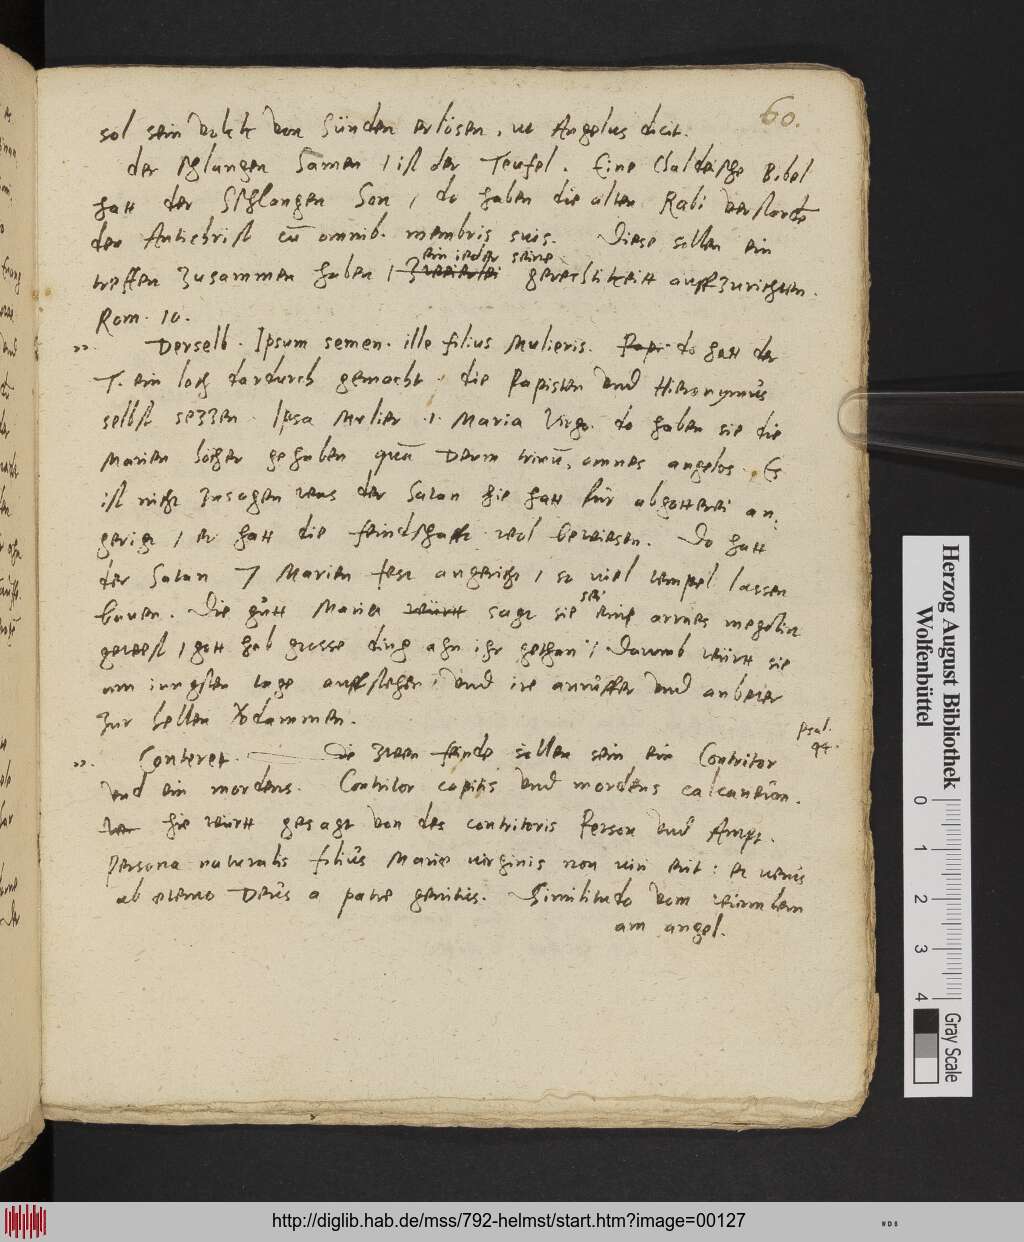 60.
sol sein volck von Sünden erlösen, ut Angelus dicit.
der schlangen Samen / ist der Teufel. Eine Chaldeische Bibel
hatt der Schlangen Son / do haben die alten Rabi verstorben
den Antichrist cū omnib. membris suis. Diese sollen ein
ein ieder seine
treffen zusammen haben / zweierlei gerechtikeitt auffzurichten.
Rom. 10.
Derselb. Ipsum semen. ille filius Mulieris. Papi do hatt der
T. ein loch dardurch gemacht. die Papisten vnd Hieronymus
selbst sezzen. Ipsa Mulier .i. Maria Virgo. do haben sie die
Marien höcher gehaben quā Deum trinū, omnes angelos. Es
ist nicht zusagen was der Satan hie hatt für abgotterei an,
gericht / er hatt die feindschafft wol beweisen. Do hatt
der Satan 7 Marien fest angericht / so viel tempel lassen
bauen. Die gutt Maria württ sagt sie sei eine armes megdlin
gewest / gott hab grosse ding ahn ihr gethan / Darumb württ sie
am iungsten tage auffstehen, vnd ire anrüffer vnd anbeter
zur hellen vordammen.
Psal.
Conteret. Die zween feinde sollen sein ein Contritor
vnd ein mordens. Contritor capitis vnd mordens calcaneum.
hie württ gesagt von des contritoris Person vnd Ampt.
Persona naturalis filius Marie virginis non viri erit: et verus
ab eterno Deus a patre genitus. Similitudo vom würmlein
am angel.
Herzog August Bibliothek
Wolfenbüttel
0 1 2 3 4
Gray Scale
http://diglib.hab.de/mss/792-helmst/start.htm?image=00127